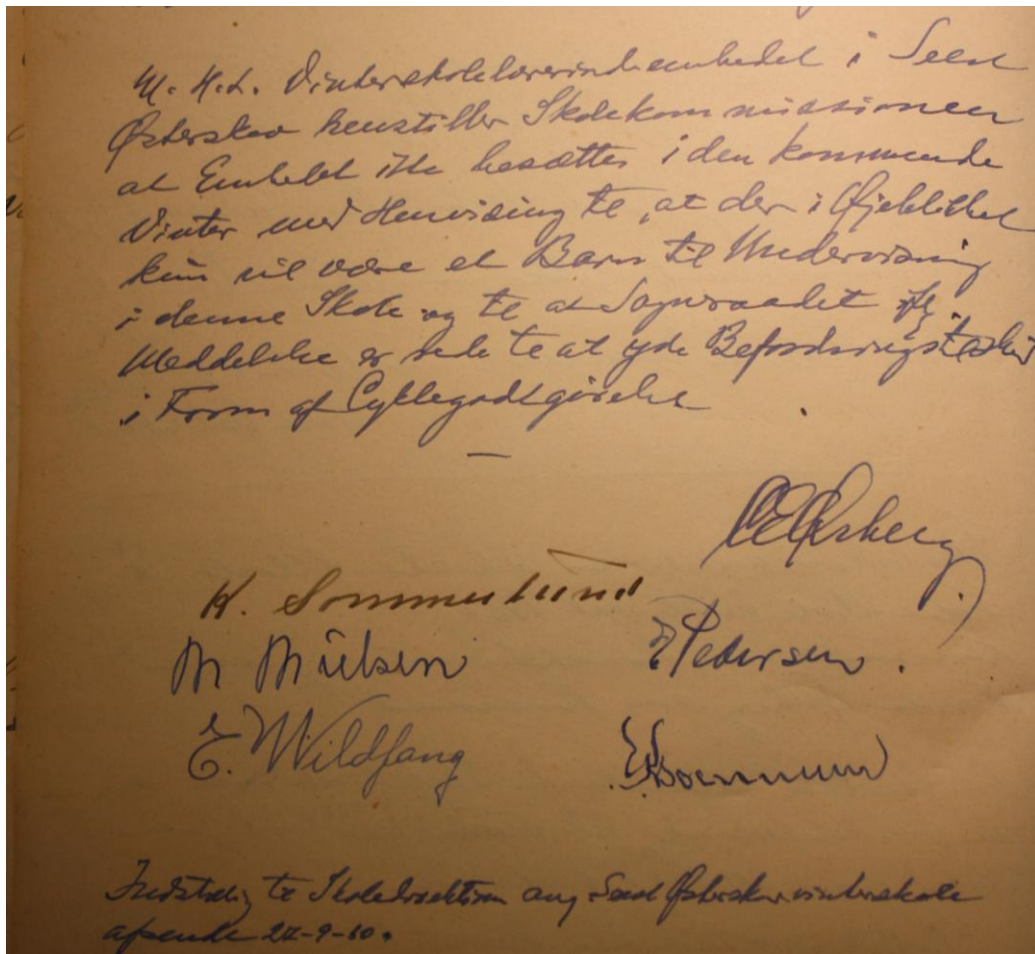 M. H. t. Vinterskolelærerindeembedet i Seest
Østerskov henstiller Skolekommissionen
at Embedet ikke besættes i den kommende
Vinter med Henvisning til, at der i Øjeblikket
kun vil være et Barn til Undervisning
i denne Skole og til at Sogneraadet ifg.
Meddelelse er rede til at yde
i Form af Cyklegodtgørelse
K. Sommerlund
M Nielsen
E Pedersen.
E. Wildfang
Indstilling til Skoledirektion ang. Seest Østerskov vinterskole
afsendt